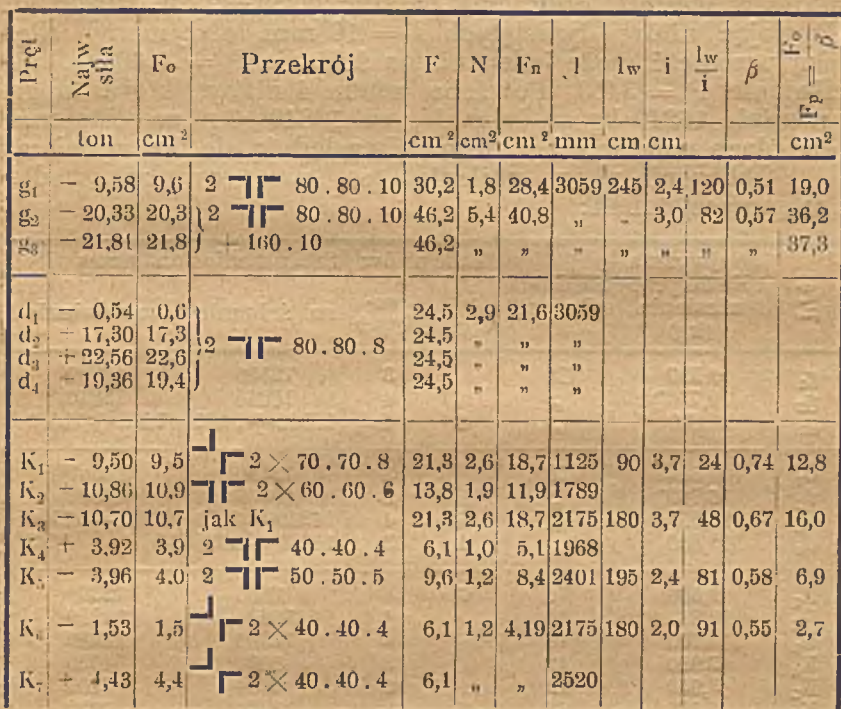 Pręt Najw. siła F₀ Przekrój F N Fₙ l l_w i l_w/i β F_p = F₀/β
ton cm² cm² cm² cm² mm cm cm cm²
g₁ − 9,58 9,6 2 ┐┌ 80 . 80 . 10 30,2 1,8 28,4 3059 245 2,4 120 0,51 19,0
g₂ − 20,33 20,3 } 2 ┐┌ 80 . 80 . 10 46,2 5,4 40,8 „ „ 3,0 82 0,57 36,2
g₃ − 21,81 21,8 } + 160 . 10 46,2 „ „ „ „ „ „ „ 37,3
d₁ − 0,54 0,6 24,5 2,9 21,6 3059
d₂ − 17,30 17,3 24,5 „ „ „
} 2 ┐┌ 80 . 80 . 8
d₃ + 22,56 22,6 24,5 „ „ „
d₄ − 19,36 19,4 24,5 „ „ „
K₁ − 9,50 9,5 ┘┌ 2 × 70 . 70 . 8 21,3 2,6 18,7 1125 90 3,7 24 0,74 12,8
K₂ − 10,86 10,9 ┐┌ 2 × 60 . 60 . 6 13,8 1,9 11,9 1789
K₃ − 10,70 10,7 jak K₁ 21,3 2,6 18,7 2175 180 3,7 48 0,67 16,0
K₄ + 3,92 3,9 2 ┐┌ 40 . 40 . 4 6,1 1,0 5,1 1968
K₅ − 3,96 4,0 2 ┐┌ 50 . 50 . 5 9,6 1,2 8,4 2401 195 2,4 81 0,58 6,9
K₆ − 1,53 1,5 ┘┌ 2 × 40 . 40 . 4 6,1 1,2 4,19 2175 180 2,0 91 0,55 2,7
K₇ + 4,43 4,4 ┘┌ 2 × 40 . 40 . 4 6,1 „ „ 2520